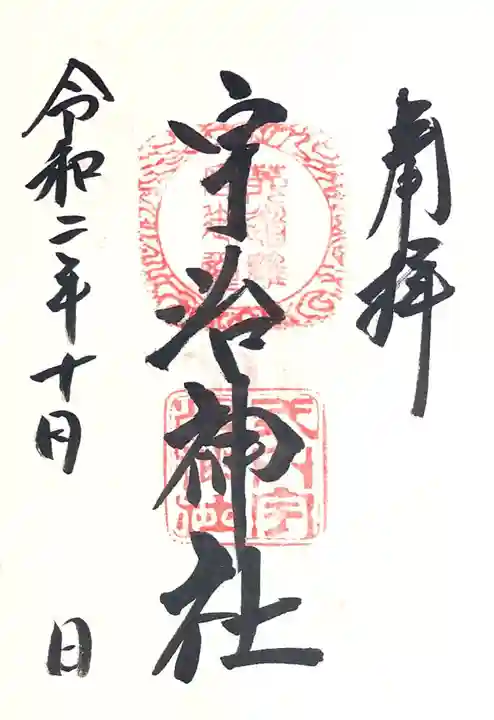 奉拝
宇治神社
令和二年十月 日